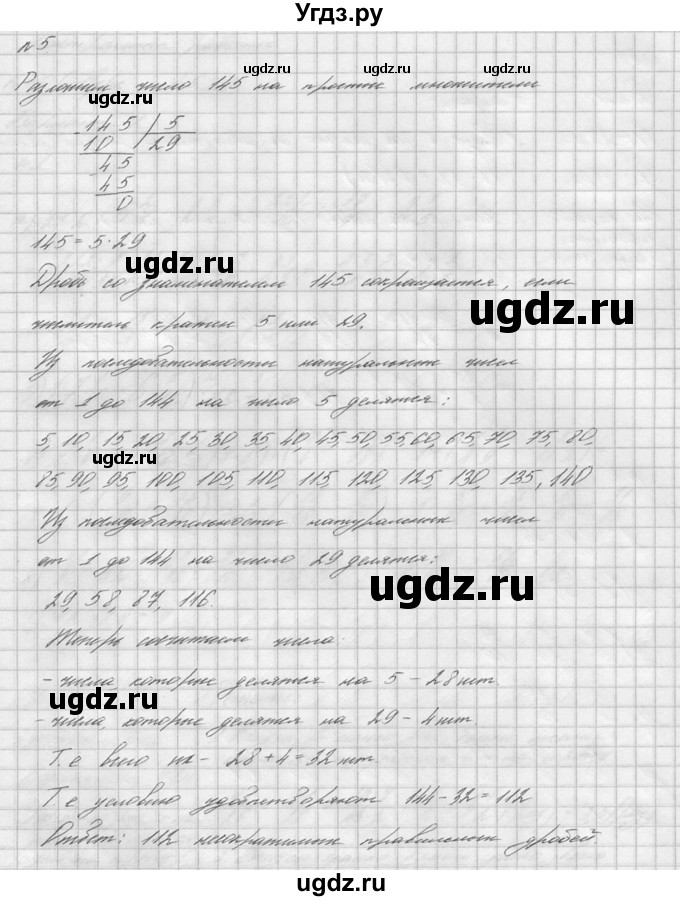 Угдз.ру
№5
ugdz.ru ugdz.ru ugdz.ru
Разложим число 145 на простые множители
ugdz.ru
145 | 5
10 29
45
45
0
145 = 5·29
ugdz.ru
Дробь со знаменателем 145 сокращается, если
ugdz.ru
числитель кратен 5 или 29.
Из последовательности натуральных чисел
от 1 до 144 на число 5 делятся:
5, 10, 15, 20, 25, 30, 35, 40, 45, 50, 55, 60, 65, 70, 75, 80,
ugdz.ru
85, 90, 95, 100, 105, 110, 115, 120, 125, 130, 135, 140
Из последовательности натуральных чисел
от 1 до 144 на число 29 делятся:
ugdz.ru
29, 58, 87, 116.
Теперь сосчитаем числа
- числа, которые делятся на 5 - 28 шт.
ugdz.ru
- числа, которые делятся на 29 - 4 шт.
Т.е всего их - 28 + 4 = 32 шт
Т.е условию удовлетворяют 144 - 32 = 112
Ответ: 112 несократимых правильных дробей
ugdz.ru